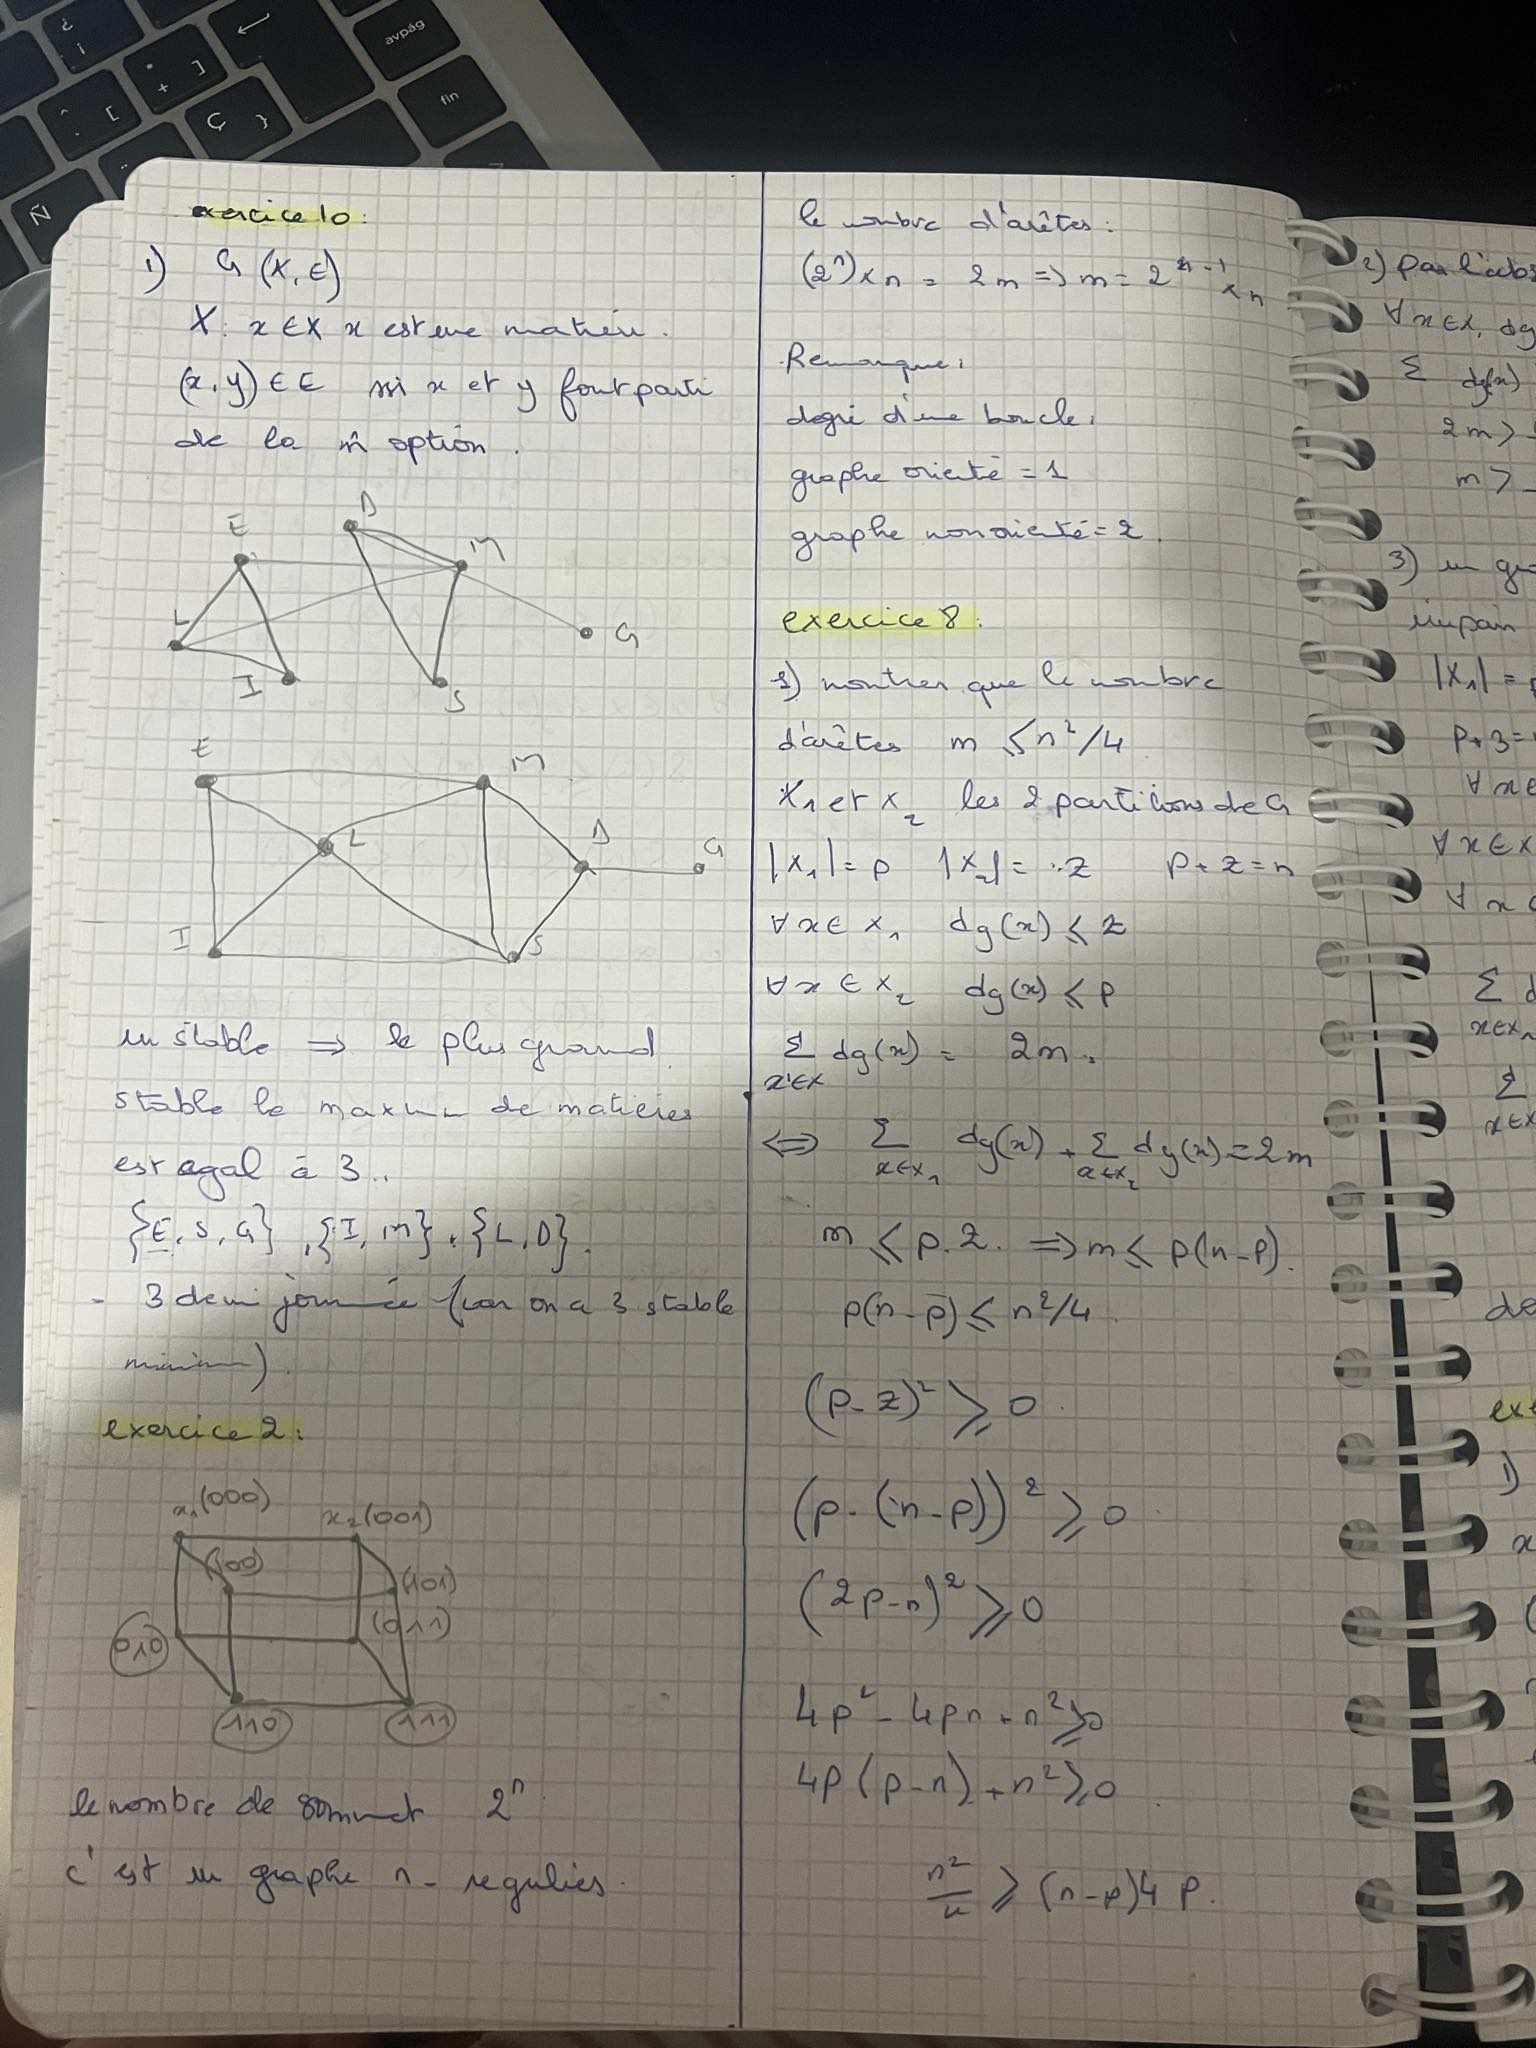 exercice 10:
1) G (X, E)
X: x ∈ X x est une matière.
(x, y) ∈ E ssi x et y font parti
de la m̂ option.
E
D
M
L
G
I
S
E
M
D
G
L
I
S
un stable ⇒ le plus grand
stable le maximum de matières
est agal à 3..
{E, S, G}, {I, M}, {L, D}.
- 3 demi journée (car on a 3 stable
minimum).
exercice 2:
x₁(000)
x₂(001)
(100)
(101)
(011)
010
110
111
le nombre de sommet 2ⁿ
c'est un graphe n-regulies.
le nombre d'arêtes:
(2ⁿ) × n = 2m ⇒ m = 2ⁿ⁻¹ × n
Remarque:
degré d'une boucle:
graphe orienté = 1
graphe non orienté = 2.
exercice 8:
1) montrer que le nombre
d'arêtes m ≤ n²/4
X₁ et X₂ les 2 partitions de G
|X₁| = p |X₂| = z p + z = n
∀ x ∈ X₁ dg(x) ≤ z
∀ x ∈ X₂ dg(x) ≤ p
Σ dg(x) = 2m.
x∈X
⟺ Σ dg(x) + Σ dg(x) = 2m
x∈X₁ x∈X₂
m ≤ p.z. ⇒ m ≤ p(n-p).
p(n-p) ≤ n²/4.
(p-z)² ≥ 0.
(p-(n-p))² ≥ 0
(2p-n)² ≥ 0
4p² - 4pn + n² ≥ 0
4p(p-n) + n² ≥ 0
n²/4 ≥ (n-p)4 p.
2) par l'abs
∀ x ∈ X, dg
Σ dg(x)
2m >
m >
3) un gra
impair
|X₁| =
p + 3 =
∀ x ∈
∀ x ∈ X
∀ x
Σ d
x∈X₁
Σ
x∈X
de
exe
1)
x